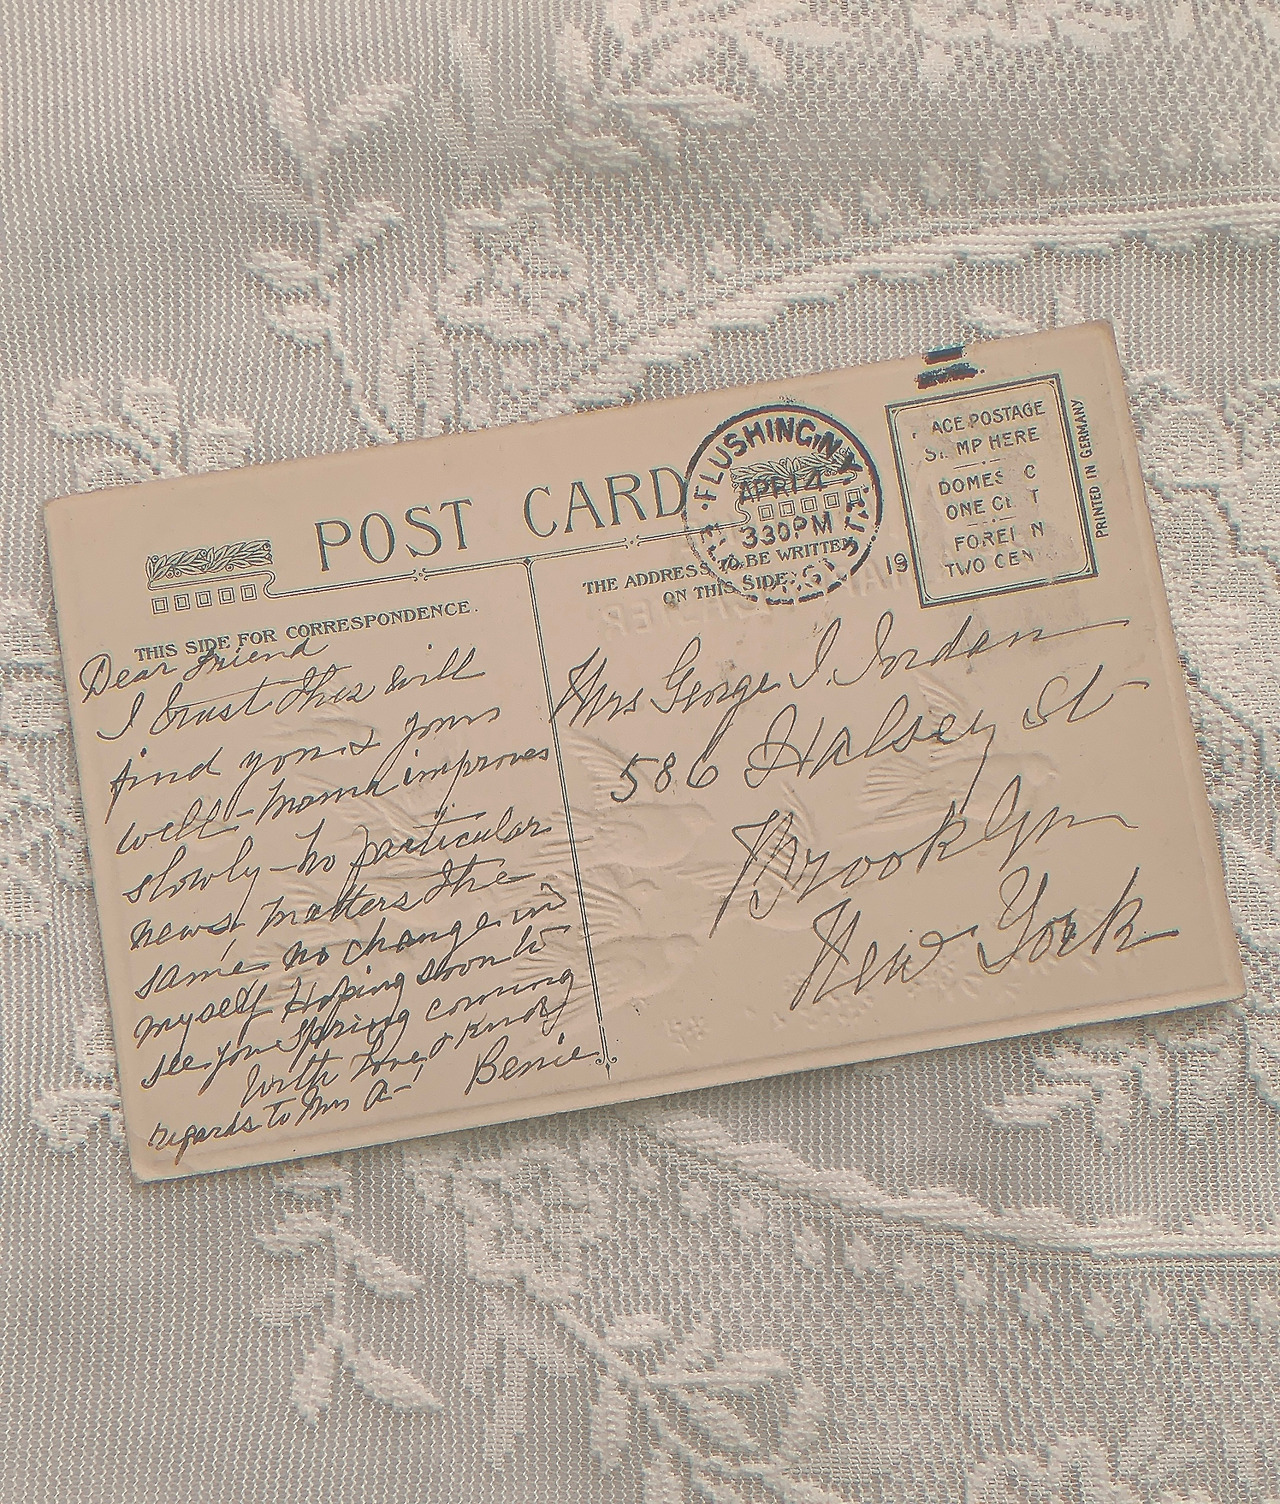 POST CARD
THIS SIDE FOR CORRESPONDENCE.
Dear Friend
I trust this will
find you & yours
well - Mama improves
slowly - no particular
news. matters the
same no change in
myself Hoping soon to
see you Spring coming
With love & kind
regards to Mr
Benie
FLUSHING, N.Y.
APR 14
330PM
THE ADDRESS TO BE WRITTEN
ON THIS SIDE.
19
ACE POSTAGE
ST MP HERE
DOMES C
ONE CE T
FOREI N
TWO CEN
PRINTED IN GERMANY
Mrs George I. Jordan
586 Halsey St
Brooklyn
New York